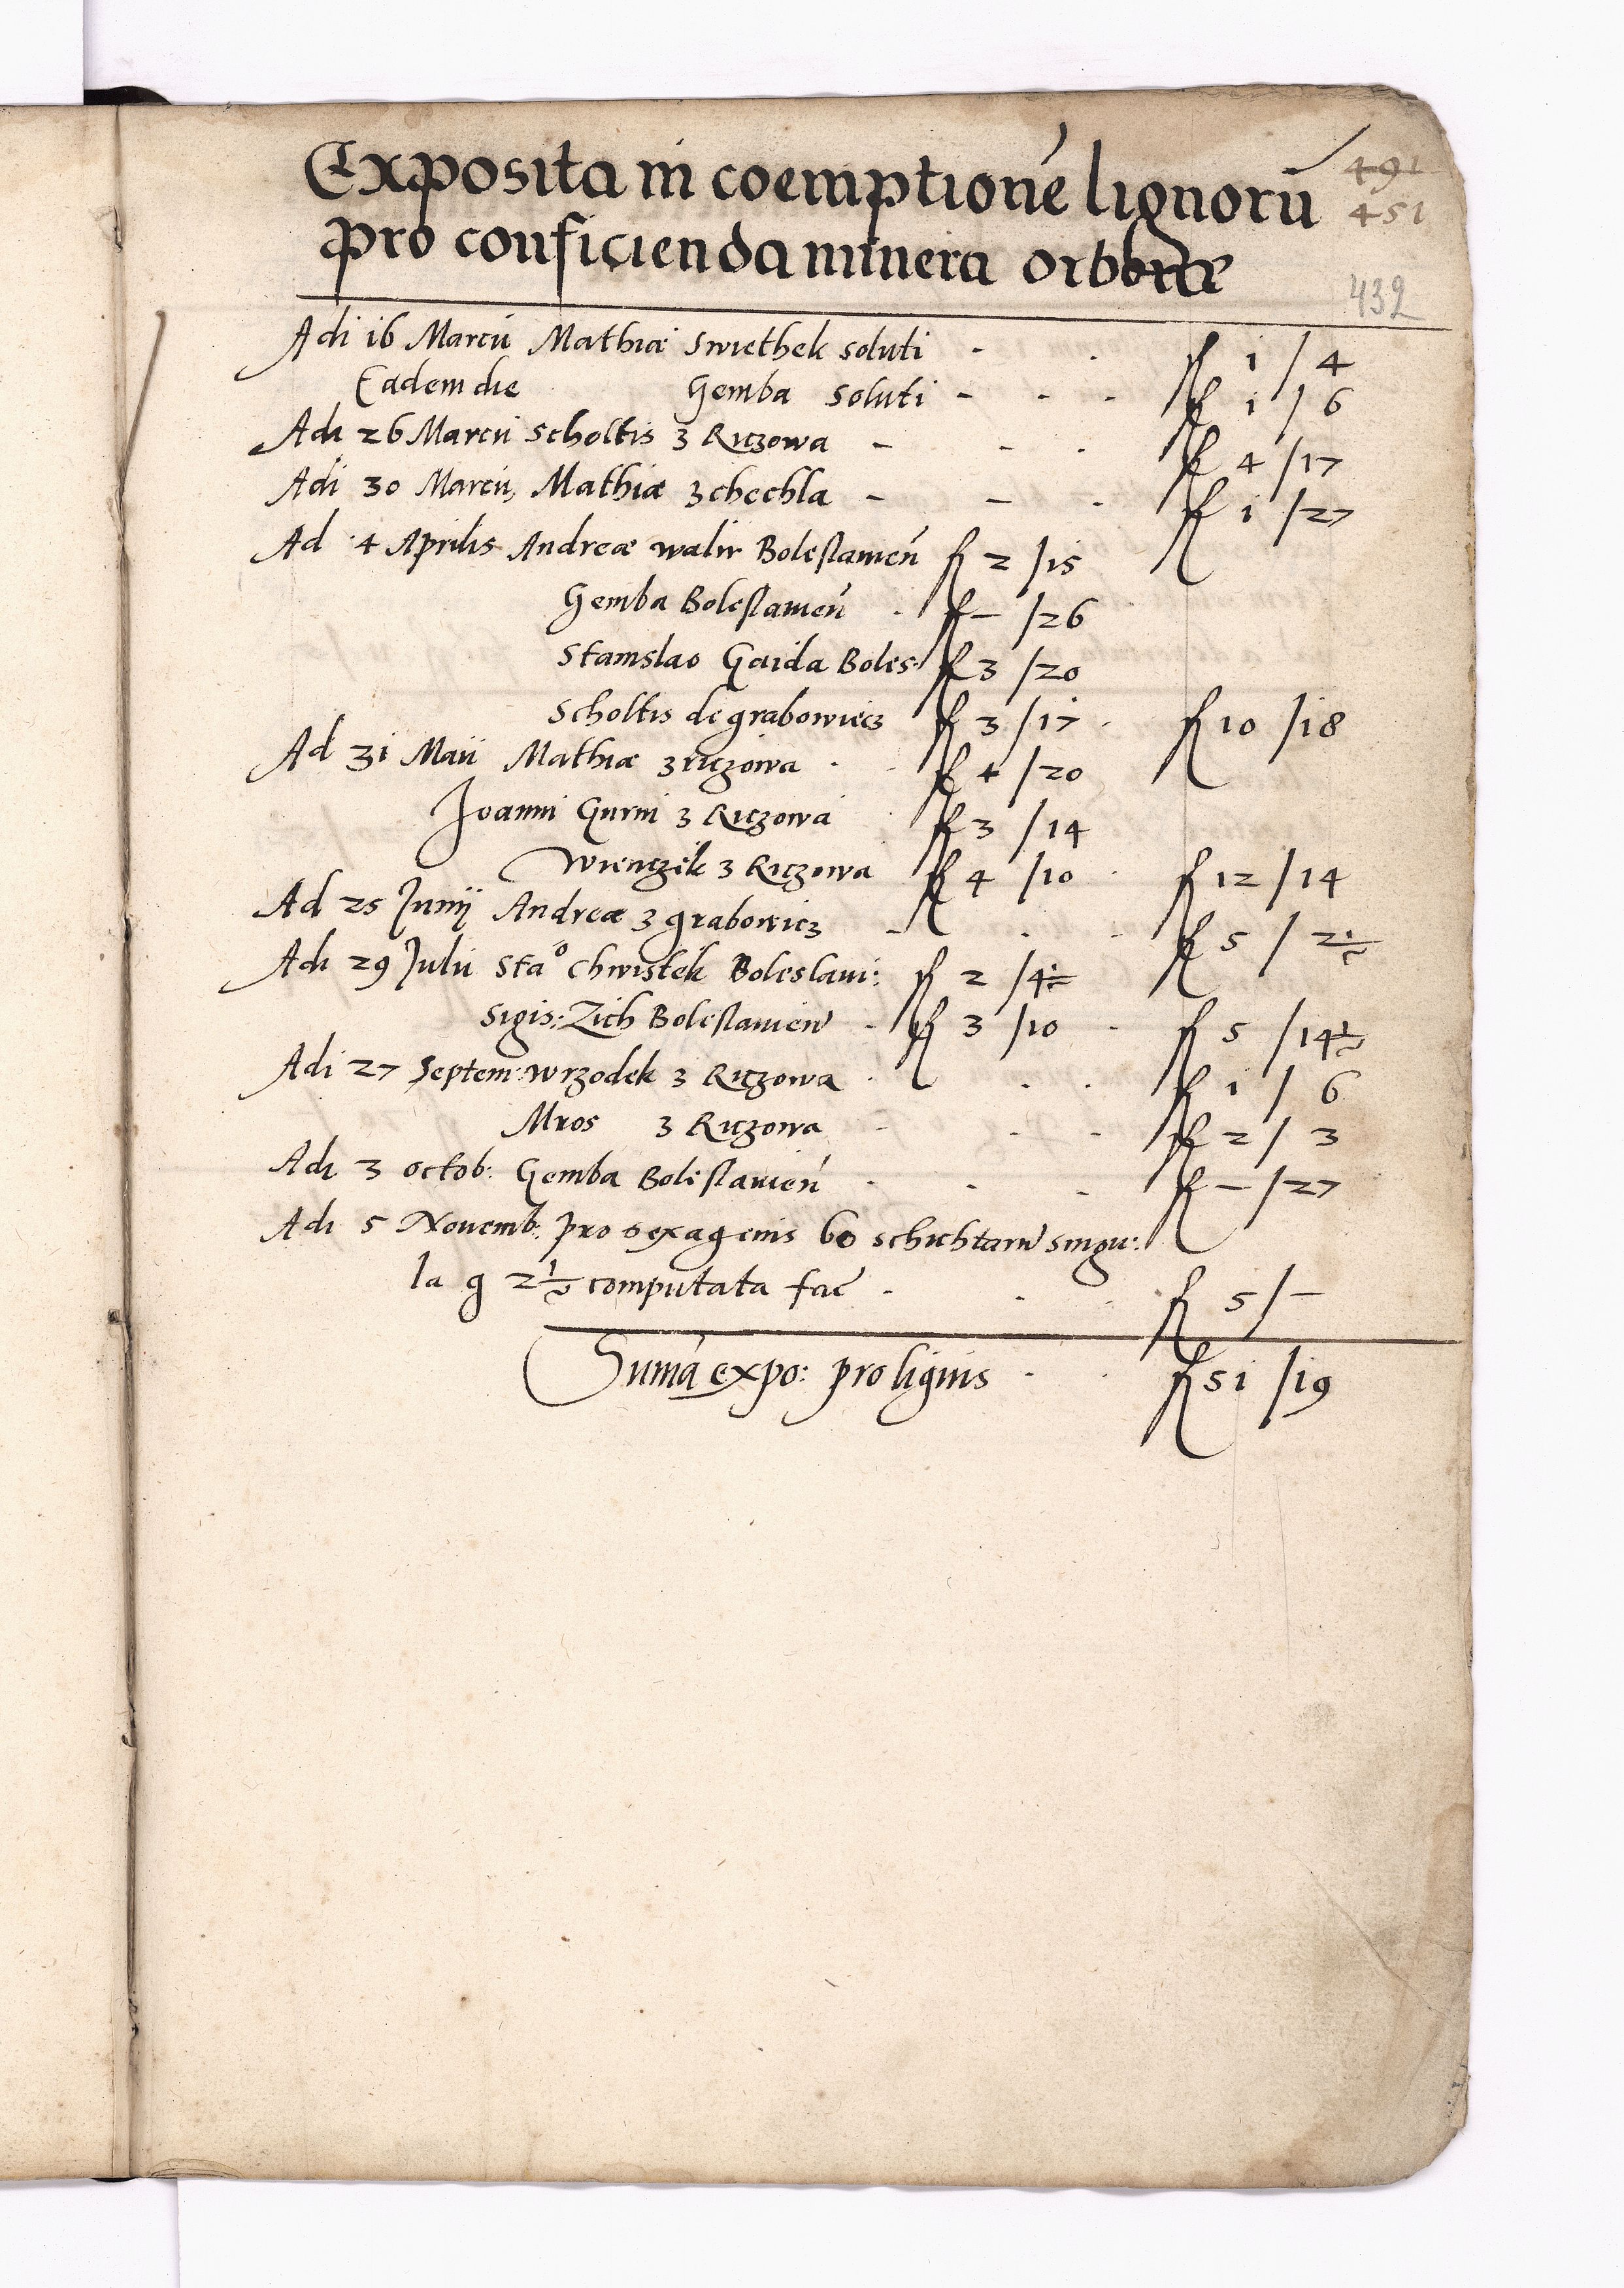 Exposita in coemptione͂ lignorū 491
pro conficienda minera orbbore 451
432
Adi 16 Marcii Mathiæ Swiethek soluti - - fl 1 / 4
Eadem die Gemba soluti - - - fl 1 / 6
Adi 26 Marcii Scholtis z Riczowa - - - fl 4 / 17
Adi 30 Marcii, Mathiæ z chechla - - - fl 1 / 27
Ad 4 Aprilis Andreæ walir Boleslauien̄ fl 2 / 15
Gemba Boleslauien̄ - fl - / 26
Stanislao Gaida Boles: fl 3 / 20
Scholtis de grabowiecz fl 3 / 17 - fl 10 / 18
Ad 31 Maii Mathiæ z riczowa - - fl 4 / 20
Joanni Gurni z Riczowa fl 3 / 14
Wrenczek z Riczowa fl 4 / 10 - fl 12 / 14
Ad 25 Junij Andreæ z grabowicz - - - fl 5 / 2½
Adi 29 Julii Staº Chwistek Boleslaui: fl 2 / 4½
Sigis: Zich Boleslauien̄ - fl 3 / 10 - fl 5 / 14½
Adi 27 Septem: Wrzodek z Riczowa - - - fl 1 / 6
Mros z Riczowa - - - fl 2 / 3
Adi 3 octob: Gemba Boleslauien̄ - - - fl - / 27
Adi 5 Nouemb: pro sexagenis 60 schichtarū singu:
la g 2½ computata fac̄ - - - fl 5 / -
Suma̅ expo: pro lignis - - fl 51 / 19